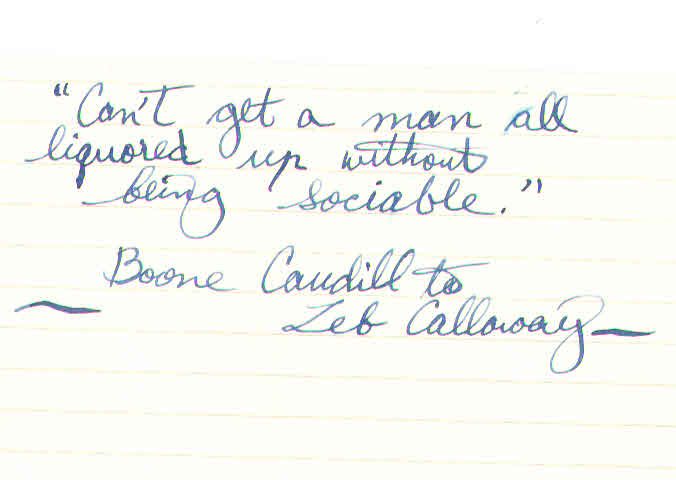 "Can't get a man all
liquored up without
being sociable."
Boone Caudill to
Zeb Calloway